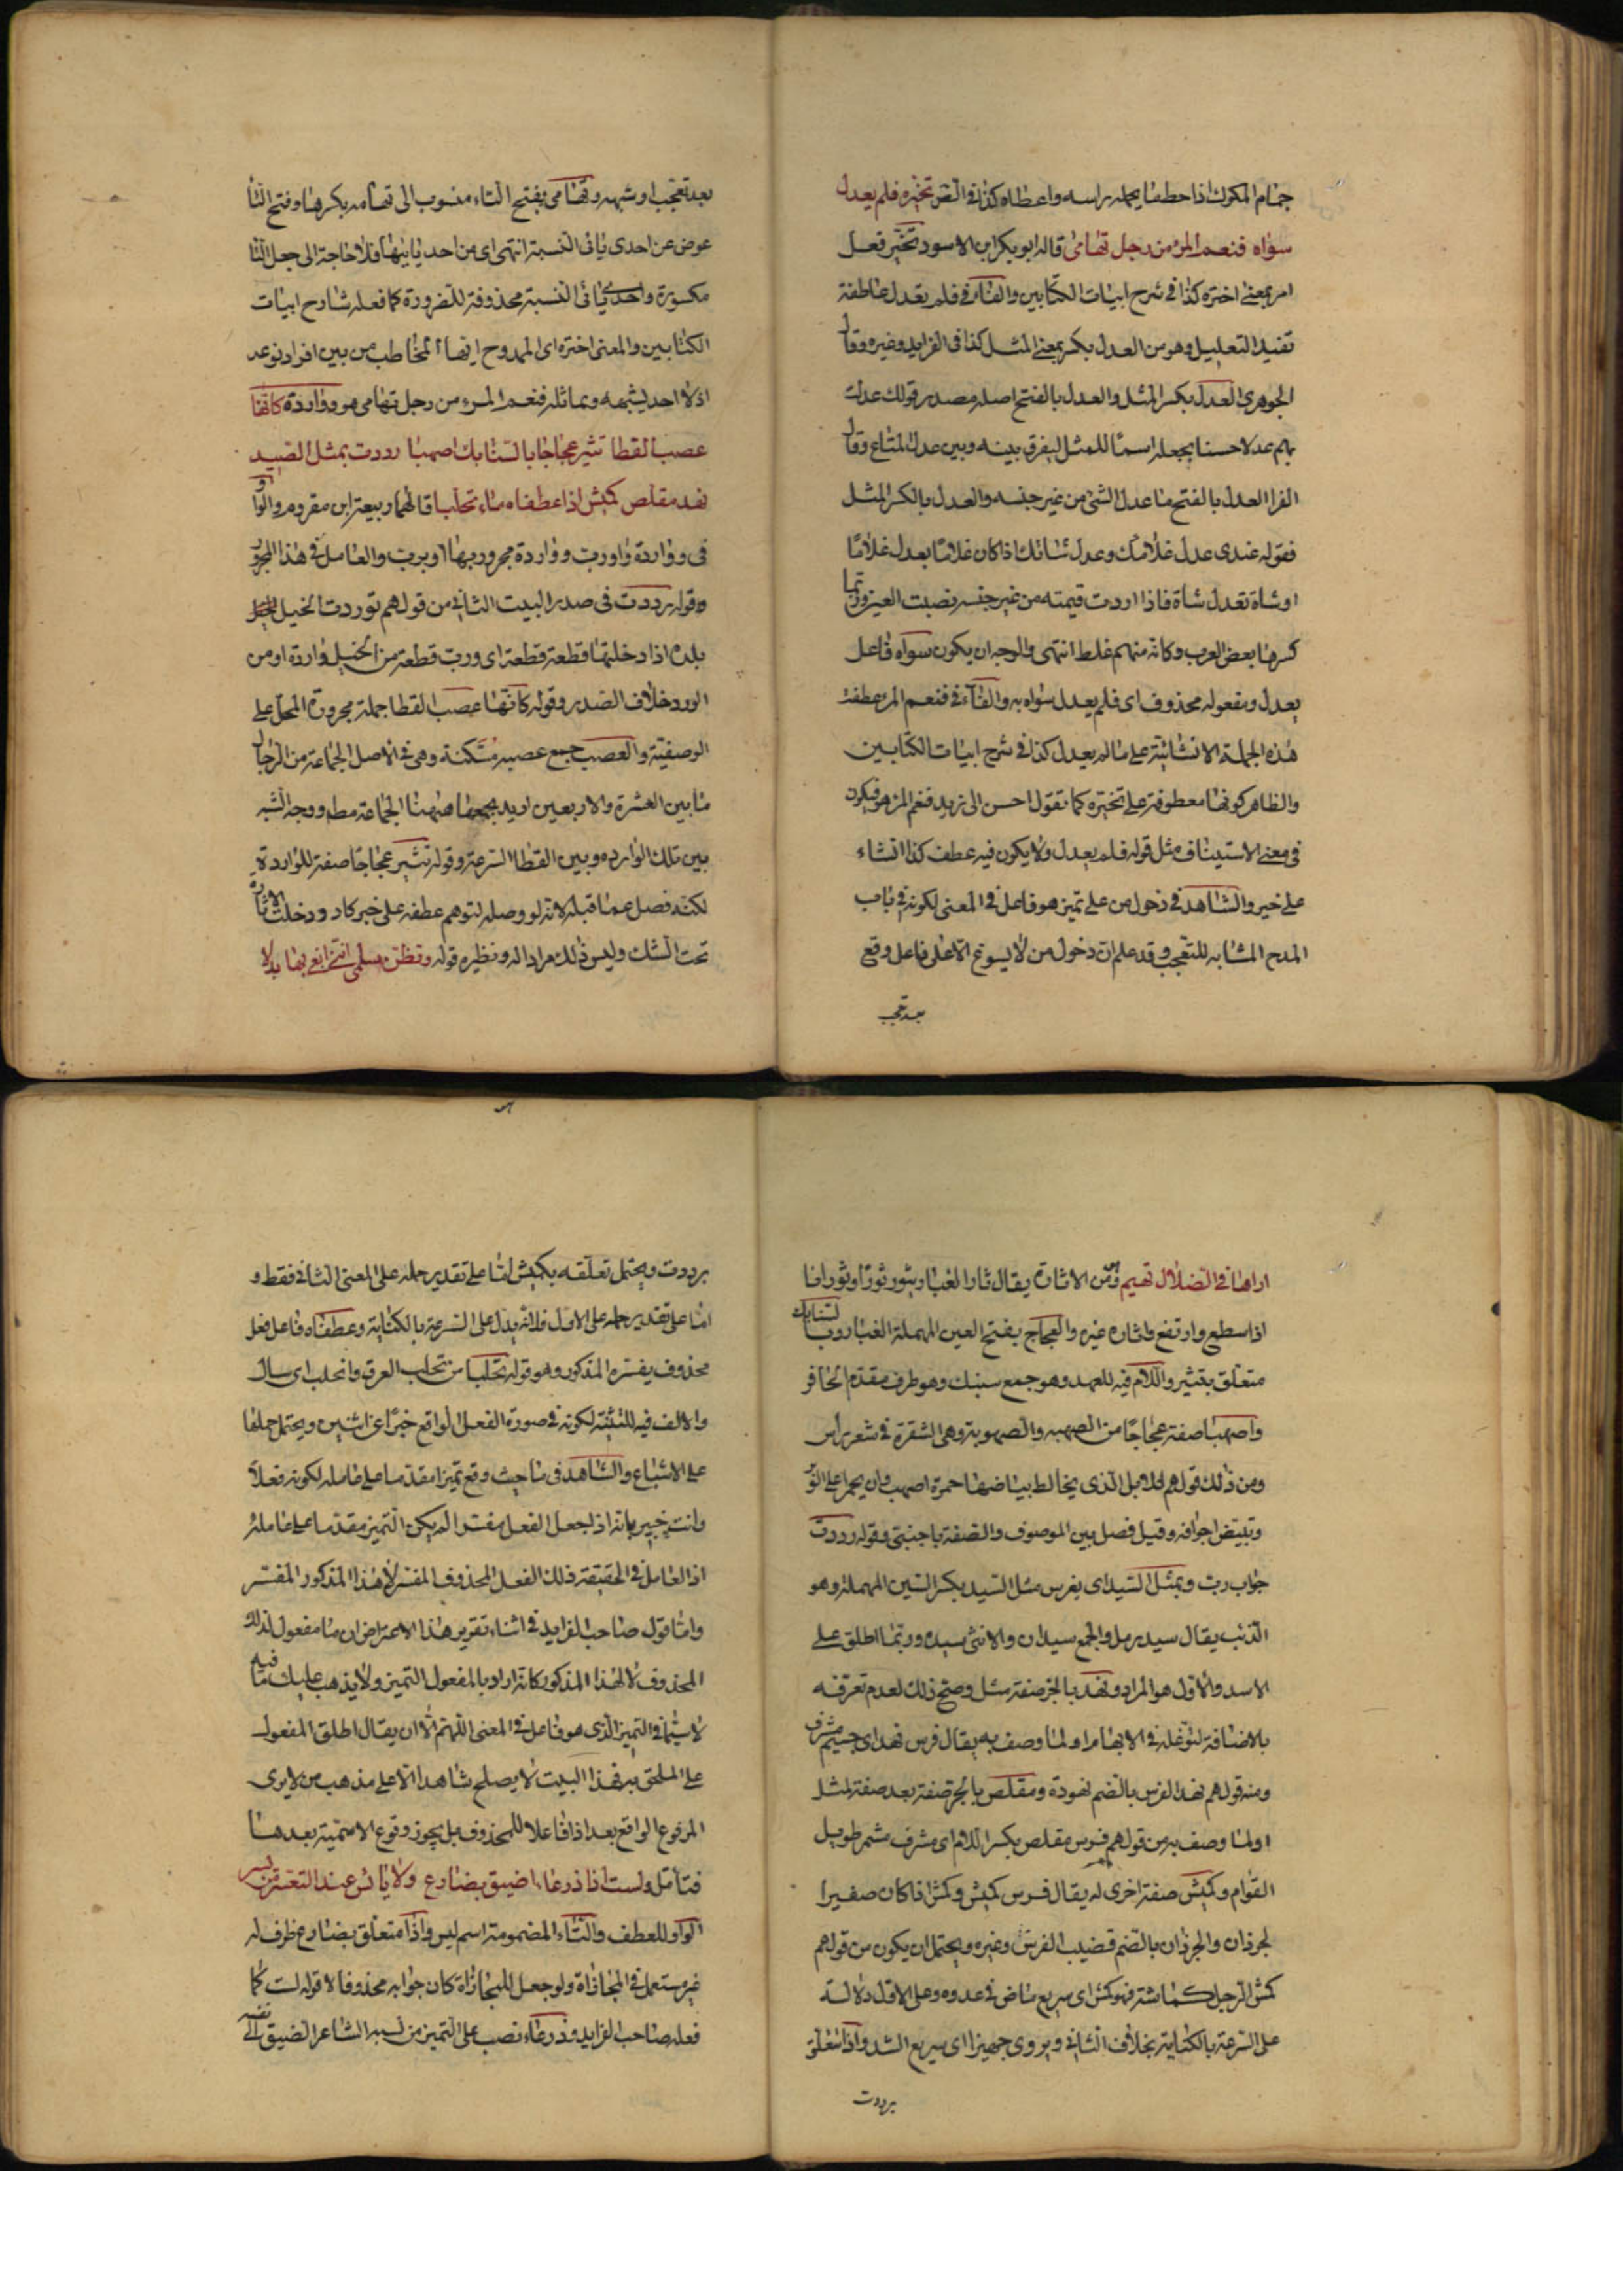 جمام المكوك اذا حطفا يحمله براسه واعطاه كذا في القس تخيره فلم يعدل
سواه فنعم المرء من رجل تهامى قاله ابو بكر ابن الاسود تخير فعل
امر بمعنى اختره كذا في شرح ابيات الكتابين والفاء في فلم يعدل عاطفة
تفيد التعليل وهو من العدل بكسر بمعنى المثل كذا في الفرايد وغيره وقال
الجوهرى العدل بكسر المثل والعدل بالفتح اصله مصدر قولك عدلت
بهم عدلا حسنا يجعله اسما للمثل ليفرق بينه وبين عدل المتاع وقال
الفرا العدل بالفتح ما عدل الشئ من غير جنسه والعدل بالكسر المثل
فقوله عندى عدل غلامك وعدل شاتك اذا كان غلاما يعدل غلاما
او شاة تعدل شاة فاذا اردت قيمته من غير جنسه نصبت العين وربما
كسرها بعض العرب وكانه منهم غلط انتهى والوجه ان يكون سواه فاعل
يعدل ومفعوله محذوف اى فلم يعدل سواه به والفاء في فنعم المرء عطفت
هذه الجملة الانشائية على ما لم يعدل كذا في شرح ابيات الكتابين
والظاهر كونها معطوفة على تخيره كما تقول احسن الى زيد فنعم المرء هو فيكون
في معنى الاستيناف مثل قوله فلم يعدل ولا يكون فيه عطف كذا انشاء
على خبر والشاهد في دخول من على تميز هو فاعل في المعنى لكونه في باب
المدح المشابه للتعجب وقد علم ان دخول من لا يسوغ الا على فاعل وقع
بعد تعجب
بعد تعجب او شبهه وتهامى بفتح التاء منسوب الى تهامه بكسرها وفتح التا
عوض عن احدى يائى النسبة انتهى اى من احد يائيها فلا حاجة الى جعل التا
مكسورة واحدى يائى النسبة محذوفة للضرورة كما فعله شارح ابيات
الكتابين والمعنى اختره اى الممدوح ايها المخاطب من بين افراد نوعه
اذ لا احد يشبهه ويماثله فنعم المرء من رجل تهامى هو وواردة كانها
عصب القطا تثير عجاجا بالسنابك اصهبا رددت بمثل السيد
نهد مقلص كميش اذا عطفاه ماء تحلبا قالهما ربيعة ابن مقروم والواو
في وواردة واو رب وواردة مجرور بها او برب والعامل في هذا المجرور
قوله رددت في صدر البيت الثاني من قولهم توردت الخيل
بلده اذا دخلتها قطعة قطعة اى ورب قطعة من الخيل واردة او من
الورود خلاف الصدر وقوله كانها عصب القطا جملة مجرورة المحل على
الوصفية والعصب جمع عصبه مسكنة وهى في الاصل الجماعة من الرجال
ما بين العشرة والاربعين اريد بجمعها ههنا الجماعة مطم ووجه الشبه
بين تلك الوارده وبين القطا السرعة وقوله تثير عجاجا صفة للواردة
لكنه فصل عما قبله لانه لو وصله لتوهم عطفه على خبر كاد ودخلت الاثارة
تحت الشك وليس ذلك مراد اله ونظيره قوله وتظن سلمى اننى ابغى بها بدلا
اراها في الضلال تهيم وتثير من الاثارة يقال ثار الغبار يثور ثورا وثورانا
اذا سطع وارتفع واثاره غيره والعجاج بفتح العين المهملة الغبار وبالسنابك
متعلق بتثير واللام فيه للعهد وهو جمع سنبك وهو طرف مقدم الحافر
واصهبا صفة عجاجا من الصهبه والصهوبة وهى الشقرة في شعر راس
ومن ذلك قولهم للابل الذى يخالط بياضها حمرة اصهب وان يحمر اعلى الوبر
وتبيض اجوافه وقيل فصل بين الموصوف والصفة باجنبى وقوله رددت
جواب رب وبمثل السيد اى بفرس مثل السيد بكسر السين المهملة وهو
الذئب يقال سيد رمل والجمع سيدان والانثى سيده وربما اطلق على
الاسد والاول هو المراد ونهد بالجر صفة مثل وصح ذلك لعدم تعرفه
بالاضافة لتوغله في الابهام او لما وصف به يقال فرس نهد اى جسيم مشرف
ومنه قولهم نهد الفرس بالضم نهودة ومقلص بالجر صفة بعد صفة لمثل
او لما وصف به من قولهم فرس مقلص بكسر اللام اى مشرف مشمر طويل
القوام وكميش صفة اخرى له يقال فرس كميش وكمش اذا كان صغير
الجرذان والجرذان بالضم قضيب الفرس وغيره ويحتمل ان يكون من قولهم
كمش الرجل كماشة فهو كمش اى سريع ماض في عدوه وعلى الاول دلالته
على السرعة بالكناية بخلاف الثاني ويروى جهيزا اى سريع الشد واذا متعلق
برددت
برددت ويحتمل تعلقه بكميش اما على تقدير حمله على المعنى الثاني فقط و
اما على تقدير حمله على الاول فلانه يدل على السرعة بالكناية وعطفاه فاعل فعل
محذوف يفسره المذكور وهو قوله تحلبا من تحلب العرق وانحلب اى سال
والالف فيه للتثنية لكونه في صورة الفعل الواقع خبرا عن اثنين ويحتمل حملها
على الاشباع والشاهد في ما حيث وقع تميزا مقدما على عامله لكونه فعلا
وانت خبير بانه اذا جعل الفعل مفسرا لم يكن التميز مقدما على عامله
اذ العامل في الحقيقة ذلك الفعل المحذوف المفسر لا هذا المذكور المفسر
واما قول صاحب الفرايد في اثناء تقرير هذا الاعتراض ان ما مفعول لذلك
المحذوف لا لهذا المذكور كانه اراد بالمفعول التميز ولا يذهب عليك ما فيه
لا سيما في التميز الذى هو فاعل في المعنى اللهم الا ان يقال اطلق المفعول
على الملحق به فهذا البيت لا يصلح شاهدا الا على مذهب من لا يرى
المرفوع الواقع بعد اذا فاعلا للمحذوف بل يجوز وقوع الاسمية بعدها
فتامل ولست اذا ذرعا اضيق بضارع ولا يائس عند التعسر من يسر
الواو للعطف والتاء المضمومة اسم ليس واذا متعلق بضارع ظرف له
غير مستعمل في المجازاة ولو جعل للمجازاة كان جوابه محذوفا لا قوله لست كما
فعله صاحب الفرايد وذرعا نصب على التميز من نسبه الشاعر الضيق الى نفسه